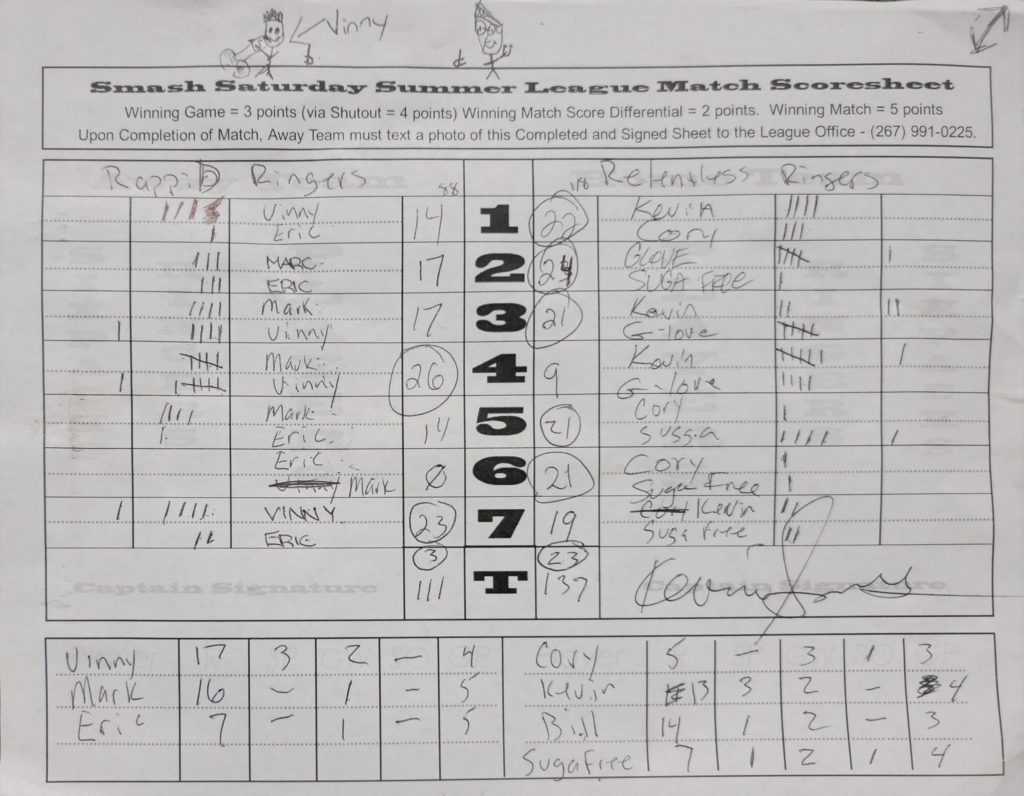 Vinny
Smash Saturday Summer League Match Scoresheet
Winning Game = 3 points (via Shutout = 4 points) Winning Match Score Differential = 2 points. Winning Match = 5 points
Upon Completion of Match, Away Team must text a photo of this Completed and Signed Sheet to the League Office - (267) 991-0225.
RappiD Ringers 88 118 Relentless Ringers
Vinny 14 1 22 Kevin
Eric Cory
MARC 17 2 21 GLOVE
ERIC SUGA FREE
Mark 17 3 21 Kevin
Vinny G-love
Mark 26 4 9 Kevin
Vinny G-love
Mark 14 5 21 Cory
Eric Sussa
Eric Ø 6 21 Cory
Vinny Mark Suga Free
VINNY 23 7 19 Cory Kevin
ERIC Suga Free
3 23
111 T 137
Captain Signature Captain Signature
Vinny 17 3 2 - 4 Cory 5 - 3 1 3
Mark 16 - 1 - 5 Kevin 13 3 2 - 4
Eric 7 - 1 - 5 Bill 14 1 2 - 3
SugaFree 7 1 2 1 4